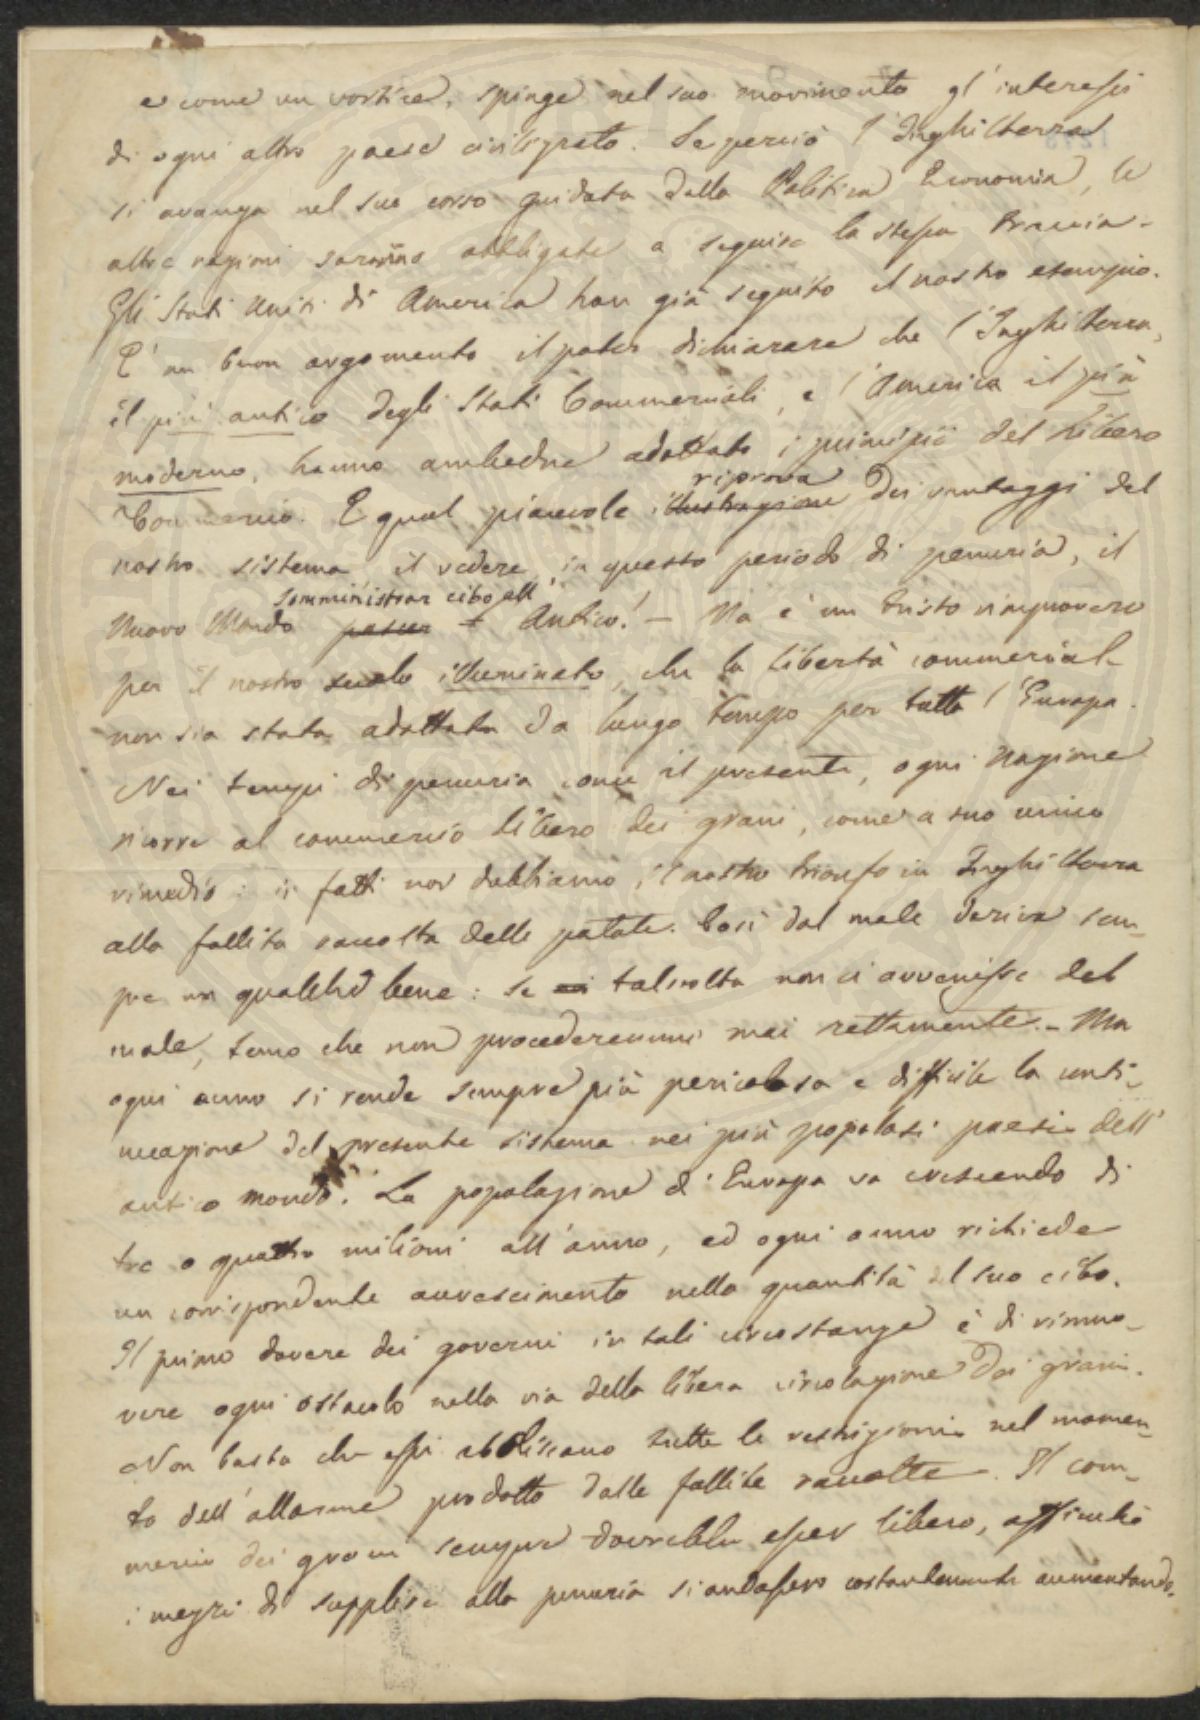 e come un vortice, spinge nel suo movimento gl'interessi
di ogni altro paese civilizzato. Se perciò l'Inghilterra
si avanza nel suo corso guidata dalla Politica Economia, le
altre nazioni saranno obbligate a seguire la stessa traccia.
Gli Stati Uniti di America han già seguito il nostro esempio.
E' un buon argomento il poter dichiarare che l'Inghilterra,
il più antico degli Stati Commerciali, e l'America il più
moderno, hanno ambedue adottato i principii del Libero
Commercio. E qual piacevole illustrazione riprova dei vantaggi del
nostro sistema il vedere, in questo periodo di penuria, il
Nuovo Mondo pascer somministrar cibo all' Antico! — Ma è un tristo rimprovero
per il nostro secolo illuminato, che la libertà commerciale
non sia stata adottata da lungo tempo per tutta l'Europa.
Nei tempi di penuria come il presente, ogni Nazione
ricorre al commercio libero dei grani, come a suo unico
rimedio: in fatti noi dobbiamo il nostro trionfo in Inghilterra
alla fallita raccolta delle patate. Così dal male deriva sem-
pre un qualche bene: se talvolta non ci avvenisse del
male, temo che non procederemmo mai rettamente. – Ma
ogni anno si rende sempre più pericolosa e difficile la conti-
nuazione del presente sistema nei più popolati paesi dell'
antico mondo. La popolazione d'Europa va crescendo di
tre o quattro milioni all'anno, ed ogni anno richiede
un corrispondente accrescimento nella quantità del suo cibo.
Il primo dovere dei governi in tali circostanze è di rimuo-
vere ogni ostacolo nella via della libera circolazione dei grani.
Non basta che essi aboliscano tutte le restrizioni nel momen-
to dell'allarme prodotto dalle fallite raccolte. Il com-
mercio dei grani sempre dovrebbe esser libero, affinché
i mezzi di supplire alla penuria si andassero costantemente aumentando.